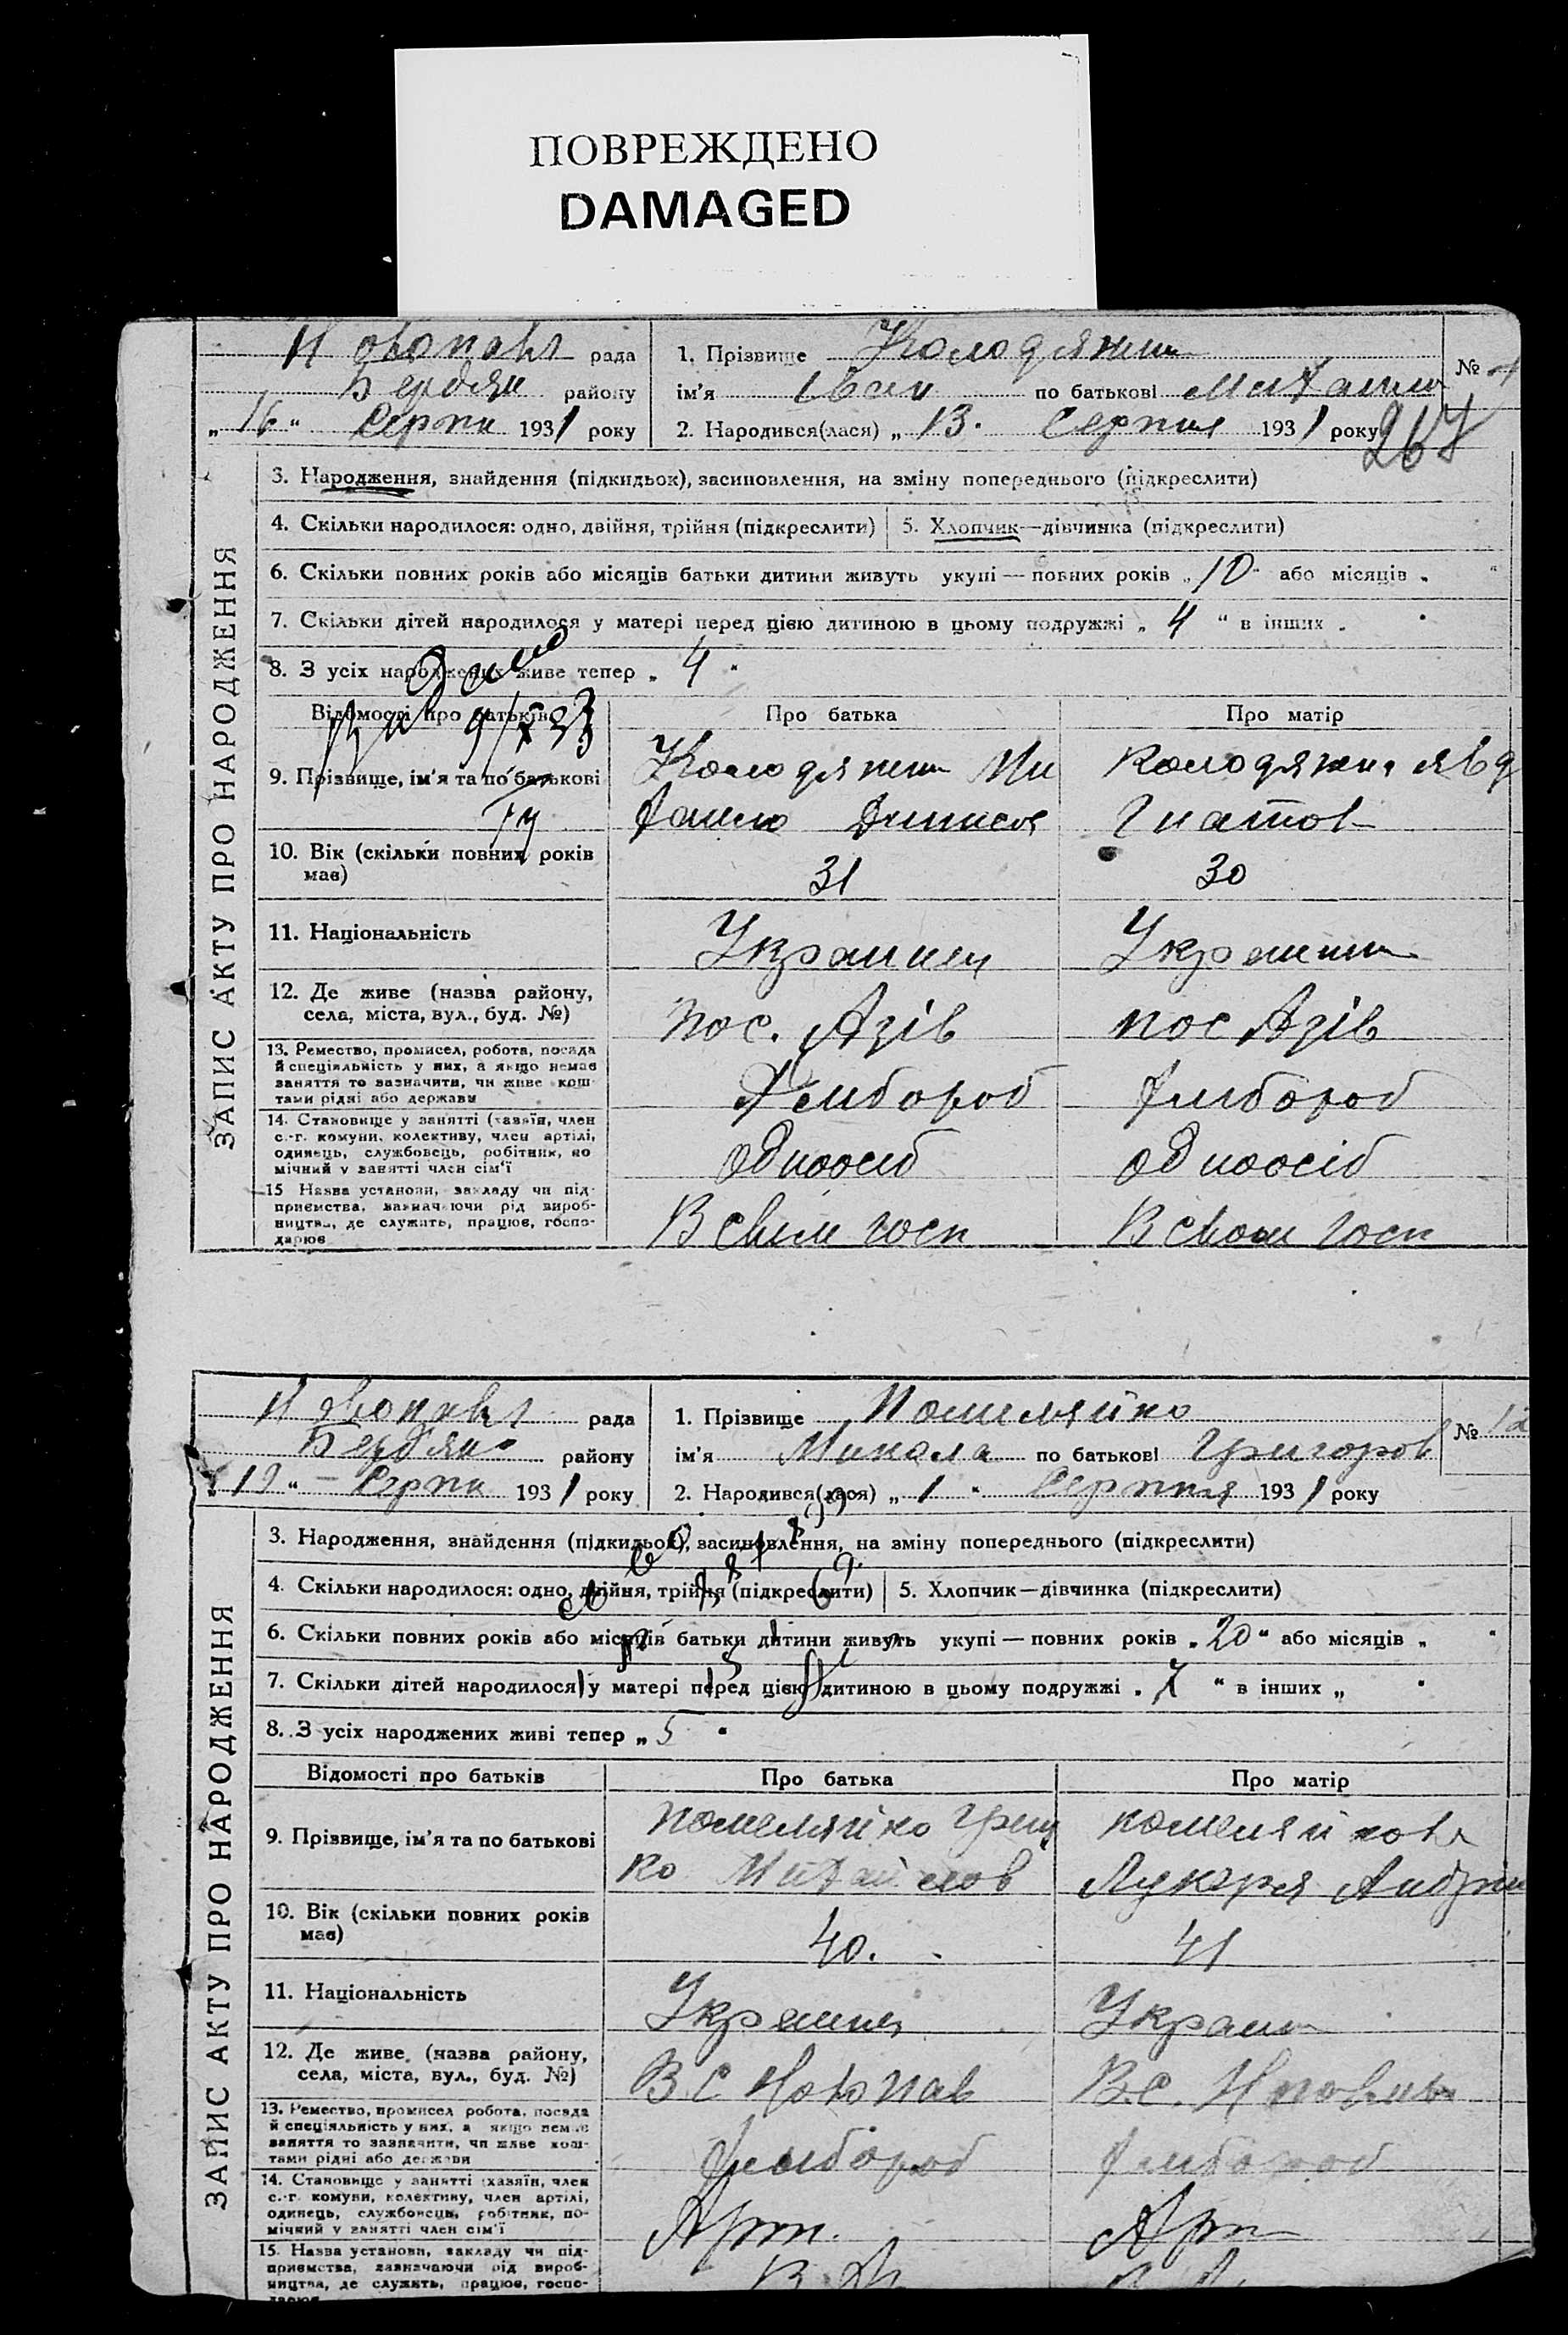 ПОВРЕЖДЕНО
DAMAGED
рада
Бердян району
„16“ Серпн 1931 року
1. Прізвище Колодяжни
ім'я Іван по батькові
2. Народився(лася) „13. Серпня 1931 року
№
267
ЗАПИС АКТУ ПРО НАРОДЖЕННЯ
3. Народження, знайдення (підкидьок), засиновлення, на зміну попереднього (підкреслити)
4. Скільки народилося: одно, двійня, трійня (підкреслити)
5. Хлопчик—дівчинка (підкреслити)
6. Скільки повних років або місяців батьки дитини живуть укупі — повних років „10“ або місяців „ “
7. Скільки дітей народилося у матері перед цією дитиною в цьому подружжі „4“ в інших „
8. З усіх народжених живе тепер „4“
Відомості про батьків
Про батька
Про матір
9. Прізвище, ім'я та по батькові
Колодяжни Ми
Колодяжна Явд
Гнатов
10. Вік (скільки повних років має)
31
30
11. Національність
Украинец
Украинка
12. Де живе (назва району, села, міста, вул., буд. №)
пос. Азів
пос Азів
13. Ремество, промисел, робота, посада й спеціяльність у них, а якщо немає заняття то зазначити, чи живе кош тами рідні або держави
Хлибороб
Хлибороб
14. Становище у занятті (хазяїн, член с.-г. комуни, колективу, член артілі, одинець, службовець, робітник, по мічний у занятті член сім'ї
одноосіб
одноосіб
15 Назва установи, закладу чи під- приємства, зазначаючи рід вироб- ництва, де служить, працює, госпо- дарює
В свим госп
В свом госп
рада
Бердян району
„19“ Серпн 1931 року
1. Прізвище
ім'я Микола по батькові Григоров
2. Народився(лася) „1“ Серпня 1931 року
№ 12
ЗАПИС АКТУ ПРО НАРОДЖЕННЯ
3. Народження, знайдення (підкидьок), засиновлення, на зміну попереднього (підкреслити)
4. Скільки народилося: одно, двійня, трійня (підкреслити)
5. Хлопчик—дівчинка (підкреслити)
6. Скільки повних років або місяців батьки дитини живуть укупі — повних років „20“ або місяців „ “
7. Скільки дітей народилося у матері перед цією дитиною в цьому подружжі „7“ в інших „
8. З усіх народжених живі тепер „5“
Відомості про батьків
Про батька
Про матір
9. Прізвище, ім'я та по батькові
Григ
ко Михайлов
Лукеря Андрии
10. Вік (скільки повних років має)
40.
41
11. Національність
Украинец
Украин
12. Де живе (назва району, села, міста, вул., буд. №)
В с Новопав
В с.
13. Ремество, промисел робота, посада й спеціяльність у них, а якщо немає заняття то зазначити, чи живе кош- тами рідні або держави
Хлибороб
Хлибороб
14. Становище у занятті (хазяїн, член с.-г. комуни, колективу, член артілі, одинець, службовець, робітник, по- мічний у занятті член сім'ї
Арт.
Арт
15. Назва установи, закладу чи під- приємства, зазначаючи рід вироб- ництва, де служить, працює, госпо- дарює